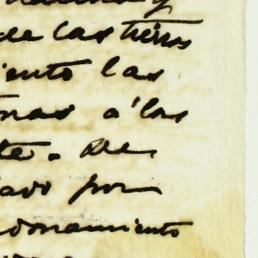 de las tierras
iento las
nas á los
te. De
ado por
donamiento